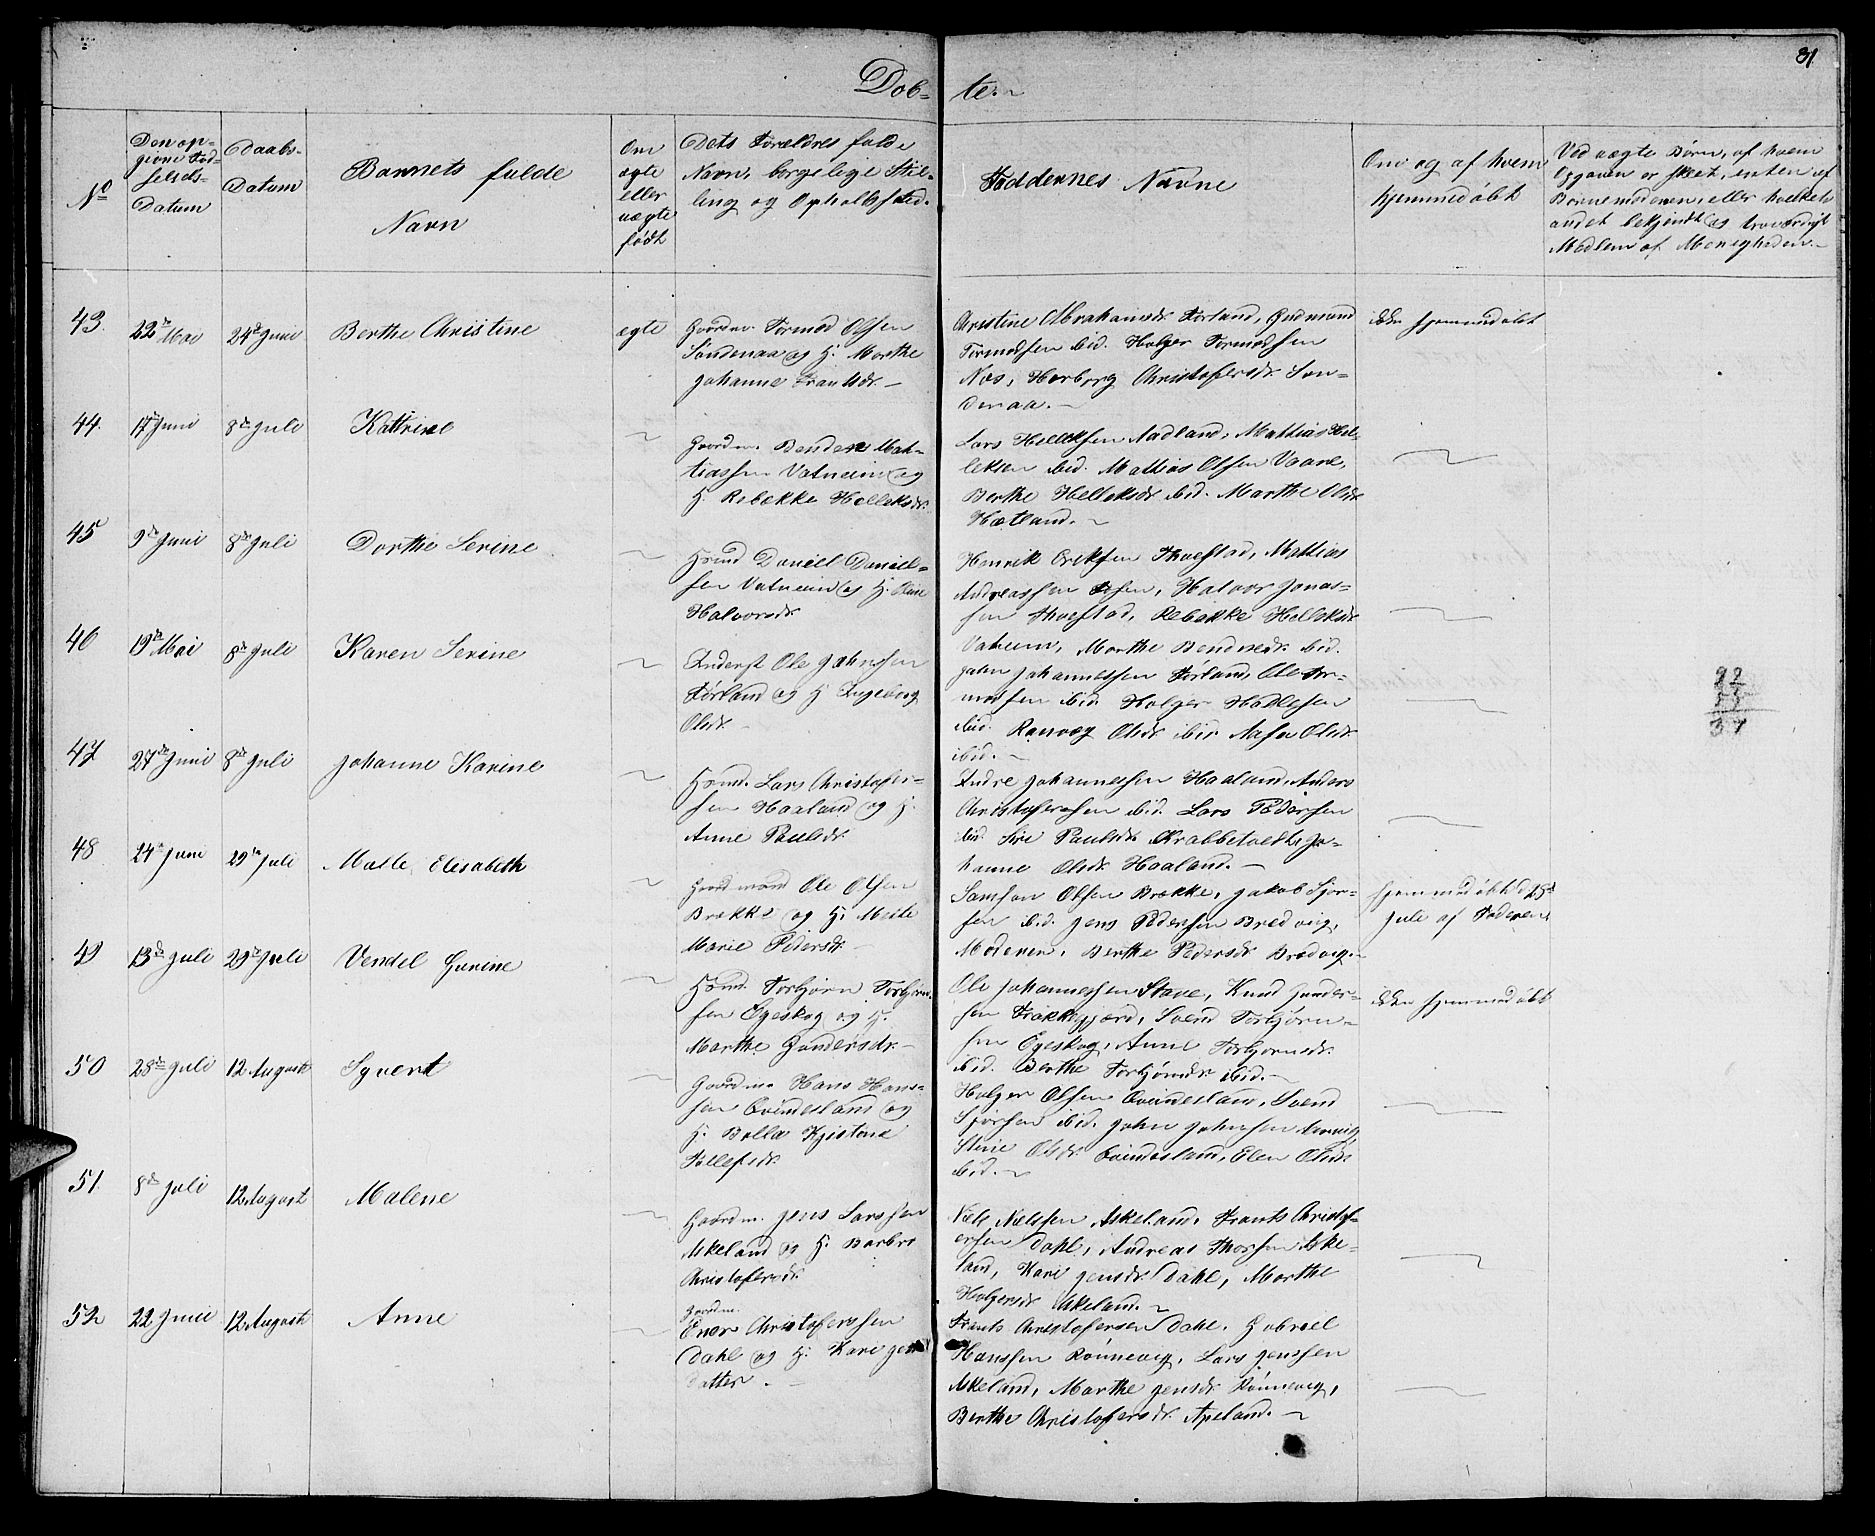 81
Døb-
te
No
Den op-
givne Fød-
selsds-
Datum
Daabs-
Datum
Barnets fulde
Navn
Om
ægte
eller
uægte
født
Dets Forældres fulde
Navn, borgelige Stil-
ling og Opholdssted.
Faddernes Navne
Om og af hvem
hjemmedøbt
Ved uægte Børn, af hvem
Opgaven er skeet, enten af
Barnemoderen, eller hvilket
andet bekjendt og troværdigt
Medlem af Menigheden.
43.
22de Mai
24de Juni
Berthe Christine
ægte
Gaardm. Tormod Olsen
Søndenaa og H. Marthe
Johanne Frantsdr.
Christine Abrahamsdr. Førland, Gudmund
Tormodsen ibid. Holger Tormodsen
Næs, Herborg Christofersdr. Søn-
denaa.
ikke hjemmedøbt
44.
17de Juni
8de Juli
Kattrine
Gaardm. Bendix Mat-
tiassen Vatneim og
H. Rebekke Helleksdr.
Lars Helleksen Aadland, Mattias Hel-
leksen ibid. Mattias Olsen Vaare,
Berthe Helleksdr. ibid. Marthe Olsdr.
Hætland.
45
9de Juni
8de Juli
Dorthe Serine
Hsmd Daniel Daniel-
sen Vatneim og H.
Halvorsdr.
Henrik Eriksen Thvestad, Mattias
Andreassen, Halvor Jonas-
sen Thvestad, Rebekke Helleksdr.
Vatneim, Marthe Bendixdr. ibid.
46
19de Mai
8de Juli
Karen Serine
Inderst Ole Johnssen
Førland og H Ingeborg
Olsdr.
John Johannessen Førland, Ole Tor-
modsen ibid. Holger Hallesen
ibid. Ranveg Olsdr. ibid Aasa Olsdr.
ibid.
92
55
37
47
27de Juni
8de Juli
Johanne Karine
Hsmd. Lars Christofer-
sen Haaland og H.
Anne Paulsdr.
Andre Johannessen Haaland, Anders
Christofersen ibid. Lars Pedersen
ibid. Siri Paulsdr. Krabbetvedt, Jo-
hanne Olsdr. Haaland.
48
24de Juni
29de Juli
Malle Elisabeth
Gaardmand Ole Olsen
Brekke og H. Mette
Marie Pedersdr.
Samson Olsen Brekke, Jakob Sjur-
sen ibid. Jens Pedersen Bredvig,
Moderen, Berthe Pedersdr. Bredvig.
hjemmedøbt d. 15d
Juli af Faderen
49
13de Juli
29de Juli
Vendel Gurine
Hsmd. Torbjørn Torbjørn-
sen Egeskog og H.
Marthe Gundersdr.
Ole Johannessen Stave, Knud Gunder-
sen, Svend Torbjørn-
sen Egeskog, Anne Torbjørnsdr.
ibid. Berthe Torbjørnsdr. ibid.
ikke hjemmedøbt
50
28de Juli
12 August
Syvert
Gaardm. Hans Hans-
sen Evindesland og
H. Bolla Kjistine
Tollefsdr.
Holger Olsen Evindesland, Svend
Sjursen ibid. John Johnsen,
Stine Olsdr. Evindesland, Elen Olsdr.
ibid.
51
8de Juli
12 August
Malene
Gaardm. Jens Larssen
Askeland og H. Barbro
Christofersdr.
Nils Nilssen Askeland, Frants Christof-
ersen Dahl, Andreas Thorsen Aske-
land, Kari Jensdr. Dahl, Marthe
Holgersdr. Askeland.
52
22 Juni
12 August
Anne
Gaardm.
Enar Christofersen
Dahl og H. Kari Jens
datter.
Frants Christofersen Dahl, Gabriel
Hanssen Rønnevig, Lars Jenssen
Askeland, Marthe Jensdr. Rønnevig,
Berthe Christofersdr. Apeland.